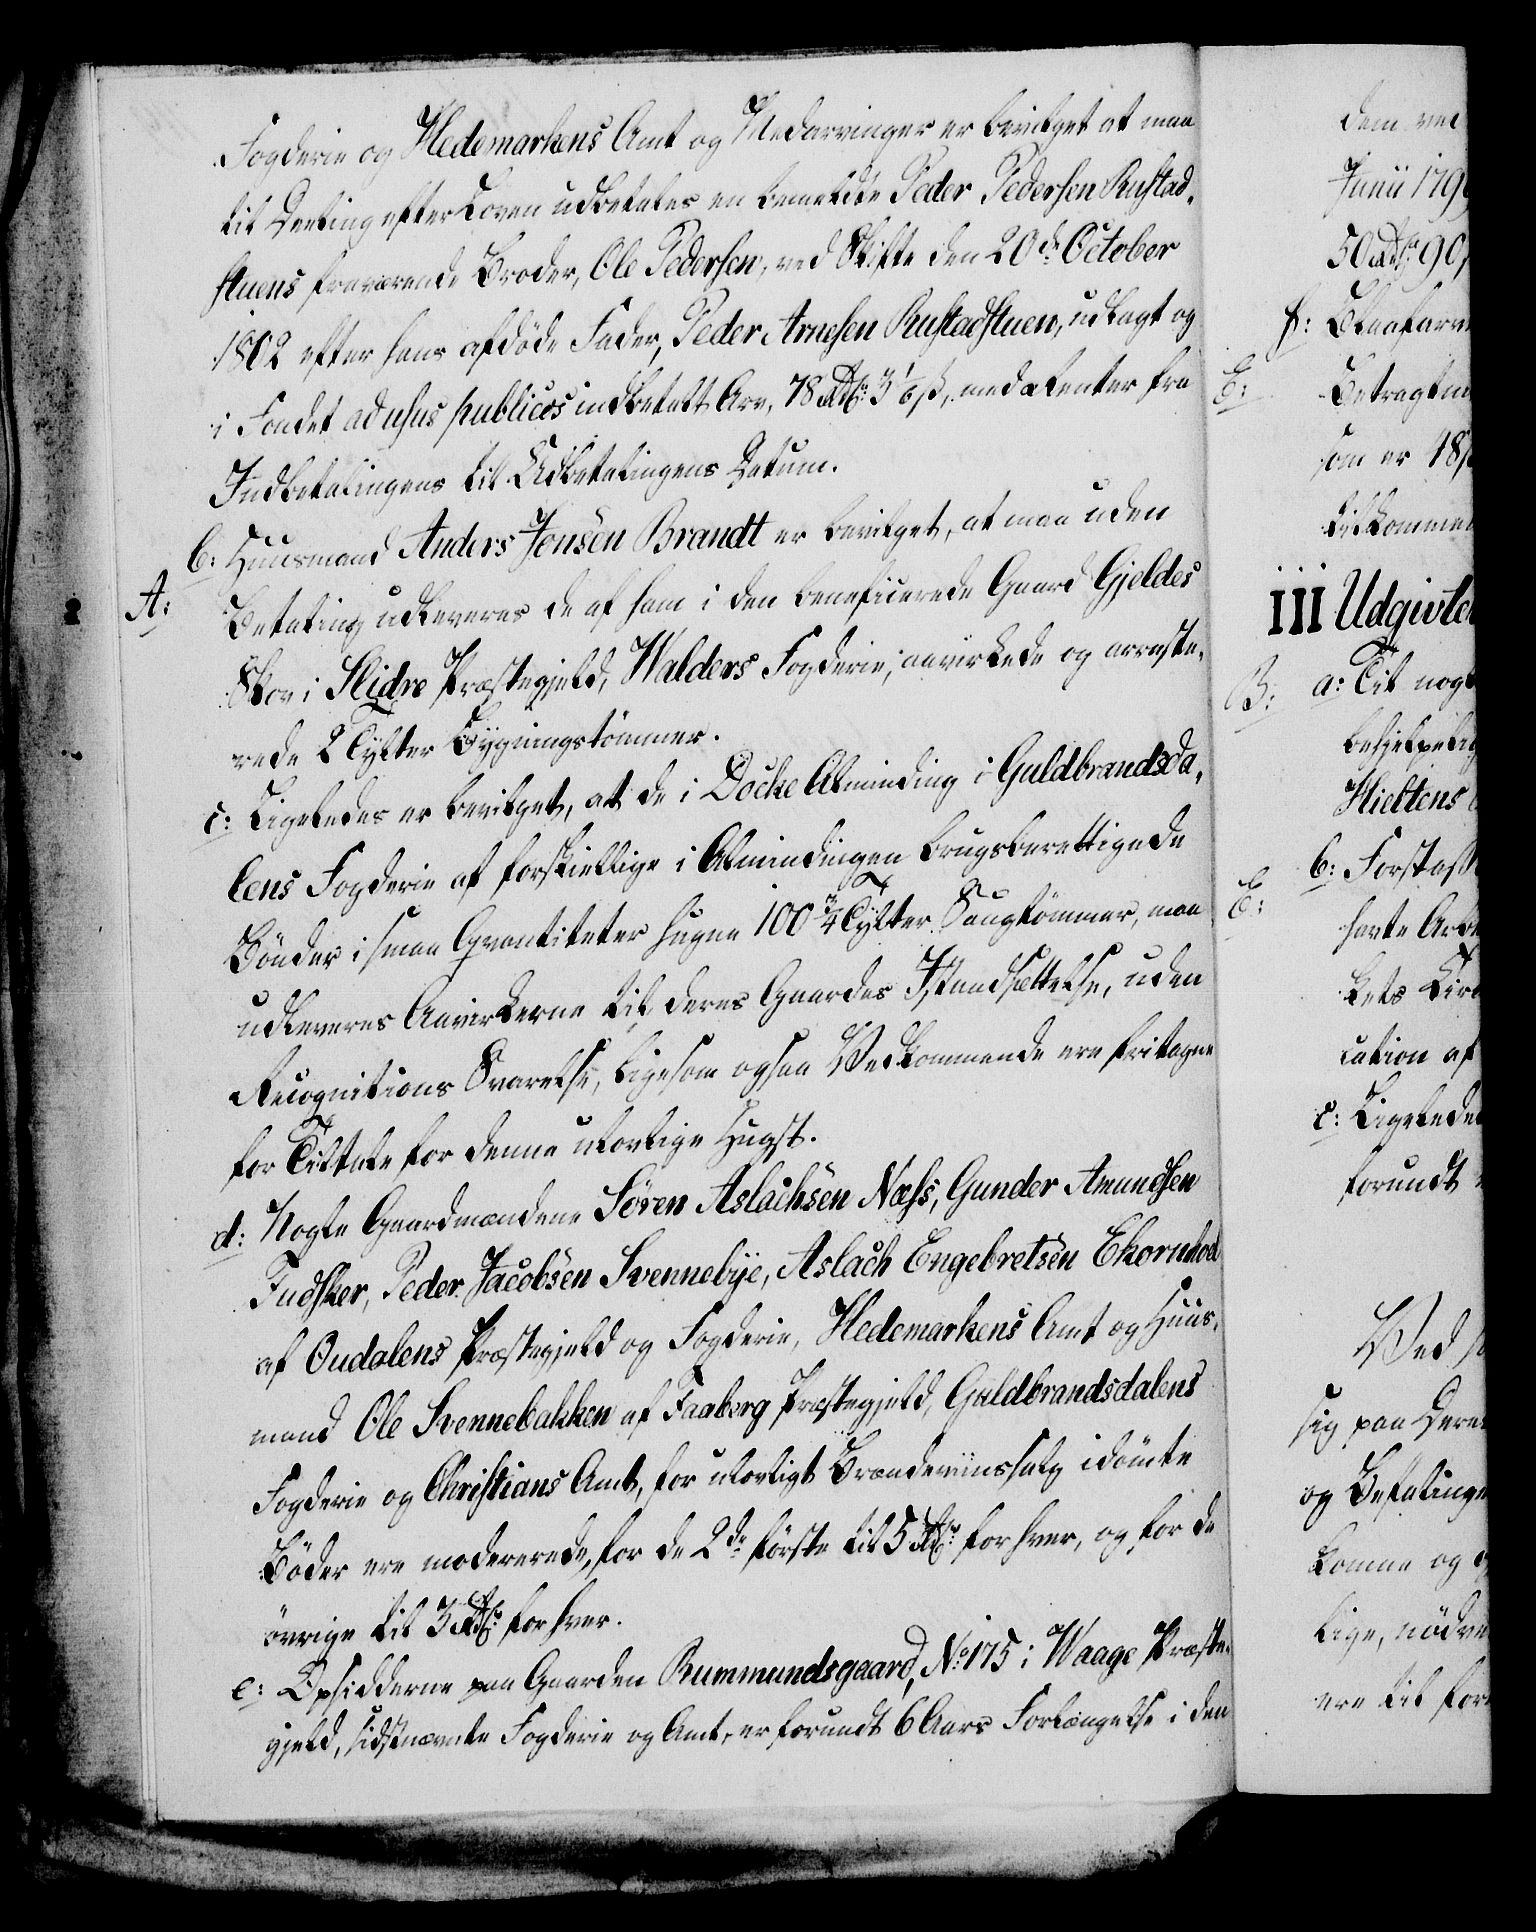 Fogderie og Hedemarkens Amt og Medarvinger er bevilget at maa
til Deeling efter Loven udbetales en bemeldte Peder Pedersen Rustad-
stuens fraværende Broder, Ole Pedersen, ved Skifte den 20de October
1802 efter hans afdöde Fader, Peder Arnesen Rustadstuen, udlagt og
i Fondet ad usus publicos indbetalt Arv, 78 Rdlr. 3 1/6 ß, med Renter fra
Indbetalingens til Udbetalingens Datum.
b: Huusmand Anders Jensen Brandt er bevilget, at maa uden
A:
Betaling udleveres de af ham i den beneficerede Gaard Gjeldes
Skov i Slidre Præstegjeld, Walders Fogderie, aavirkede og arreste-
rede 2 Tylter Bygningstömmer.
c: Ligeledes er bevilget, at de i Docke Alminding i Guldbrandsda-
lens Fogderie af forskiellige i Almindingen brugsberettigede
Bönder i smaa Qvantiteter hugne 100 3/4 Tylter Saugtömmer, maa
udleveres Aavirkerne til deres Gaardes Istandsættelse, uden
Recognitions Svarelse, ligesom ogsaa Vedkommende ere fritagne
for Tiltale for denne ulovlige Hugst.
d: Nogle Gaardmændene Sören Aslachsen Næss, Gunder Amundsen
Fudsker, Peder Jacobsen Svennebye, Aslach Engebretsen Ekornhoel
af Oudalens Præstegjeld og Fogderie, Hedemarkens Amt og Huus-
mand Ole Svennebakken af Faaberg Præstegjeld, Guldbrandsdalens
Fogderie og Christians Amt, for ulovligt Brændeviinssalg idömte
Böder ere modererede, for de 2de förste til 5 Rdlr. for hver, og for de
övrige til 3 Rdlr. for hver.
e: Opsidderne paa Gaarden Rummundsgaard, No. 175 i Waage Præste-
gjeld, sidstnævnte Fogderie og Amt, er forundt 6 Aars Forlængelse i den
dem ved
Junii 179
50 Rdlr. 90
f: Blaafarve
E: Betragtni
som er 48
tilkommen
III Udgivte
B: a: Til nogl
behjelpelig
Hieltens
b: Forstass
E: havte Arb
cation af
c: Ligelede
forundt
Ved
sig paa Dere
og Befalinge
komne og
lige, nödve
ere til for